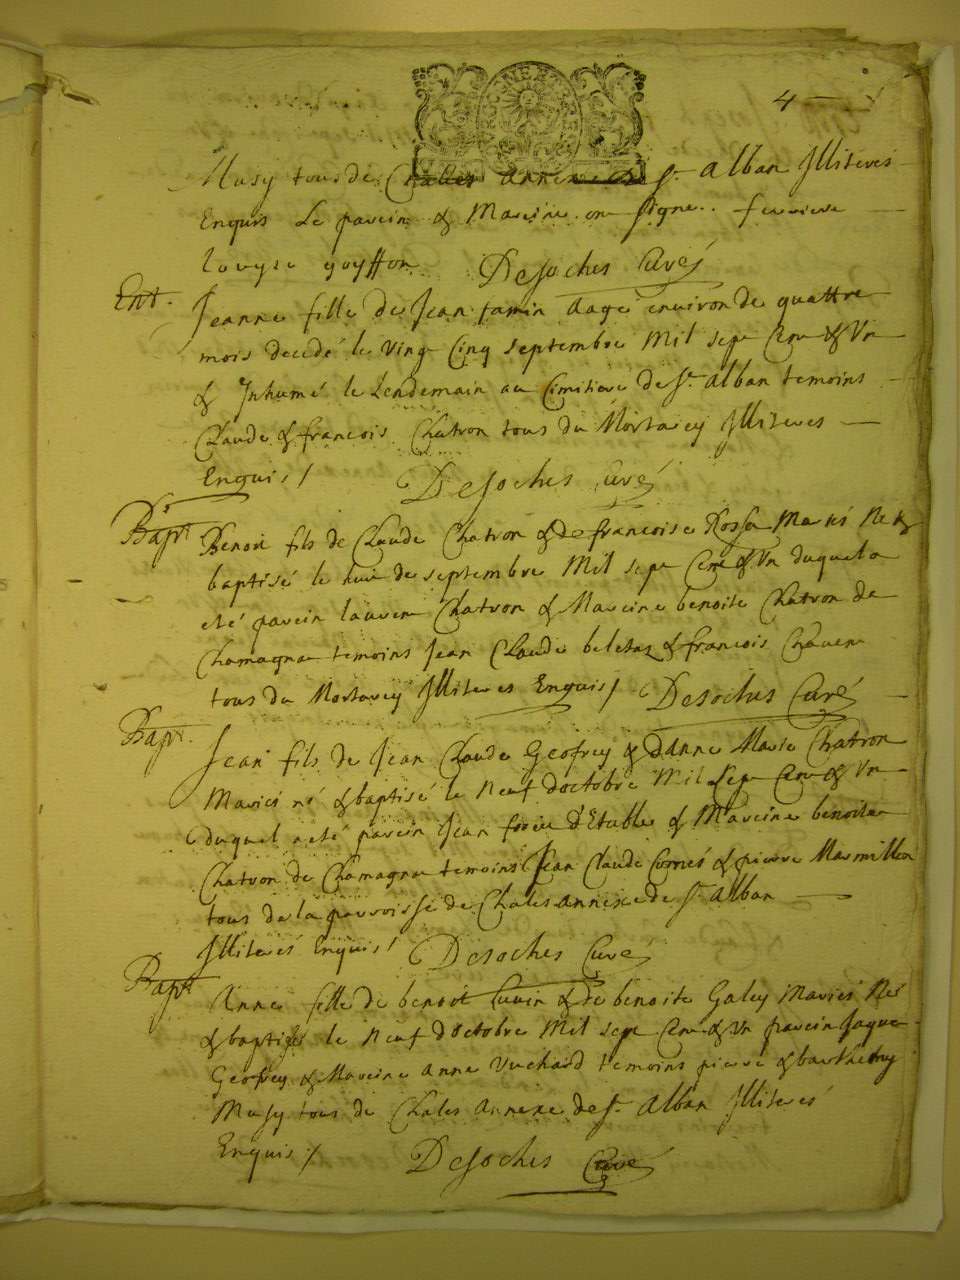 4
Musy tous de Challes Annexe de St Alban Illiteres
Enquis Le parein & Mareine on signe.
Louyse guyffon Desoches Curé
Ent. Jeanne fille de Jean famin Aagé environ de quattre
mois decedé le vingt Cinq septembre Mil sept Cent & Vn
& Inhumé le Lendemain au Cimitiere de St Alban temoins
Claude & francois Chatron tous du Mortarey Illiteres
Enquis / Desoches Curé
Bapt Benoit fils de Claude Chatron & de francoise Rosse Mariés Né &
baptisé le huit de septembre Mil sept Cent & Vn duquel a
eté parein laurent Chatron & Mareine benoite Chatron de
Chamagna temoins Jean Claude & francois
tous du Mortarey Illiteres Enquis / Desoches Curé
Bapt. Jean fils de Jean Claude Geofrey & dAnne Marie Chatron
Mariés né & baptisé le Neuf doctobre Mil Sept Cent & Vn
duquel a eté parein Jean d'Etables & Mareine benoite
Chatron de Chamagna temoins Jean Claude & pierre Marmillon
tous de la parroisse de Chales Annexe de St Alban
Illiterés Enquis / Desoches Curé
Bapt Anne fille de benoit Cuvin & de benoite Galey Mariés Née
& baptisés le Neuf doctobre Mil sept Cent & Vn parein Jaque
Geofrey & Mareine Anne Vuchard temoins pierre & barthelmy
Musy tous de Chales Annexe de St Alban Illiterés
Enquis / Desoches Curé